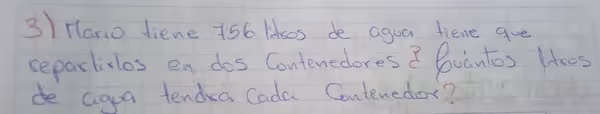 3) Mario tiene 756 litros de agua tiene que
repartirlos en dos Contenedores ¿ Cuántos litros
de agua tendra Cada Contenedor?